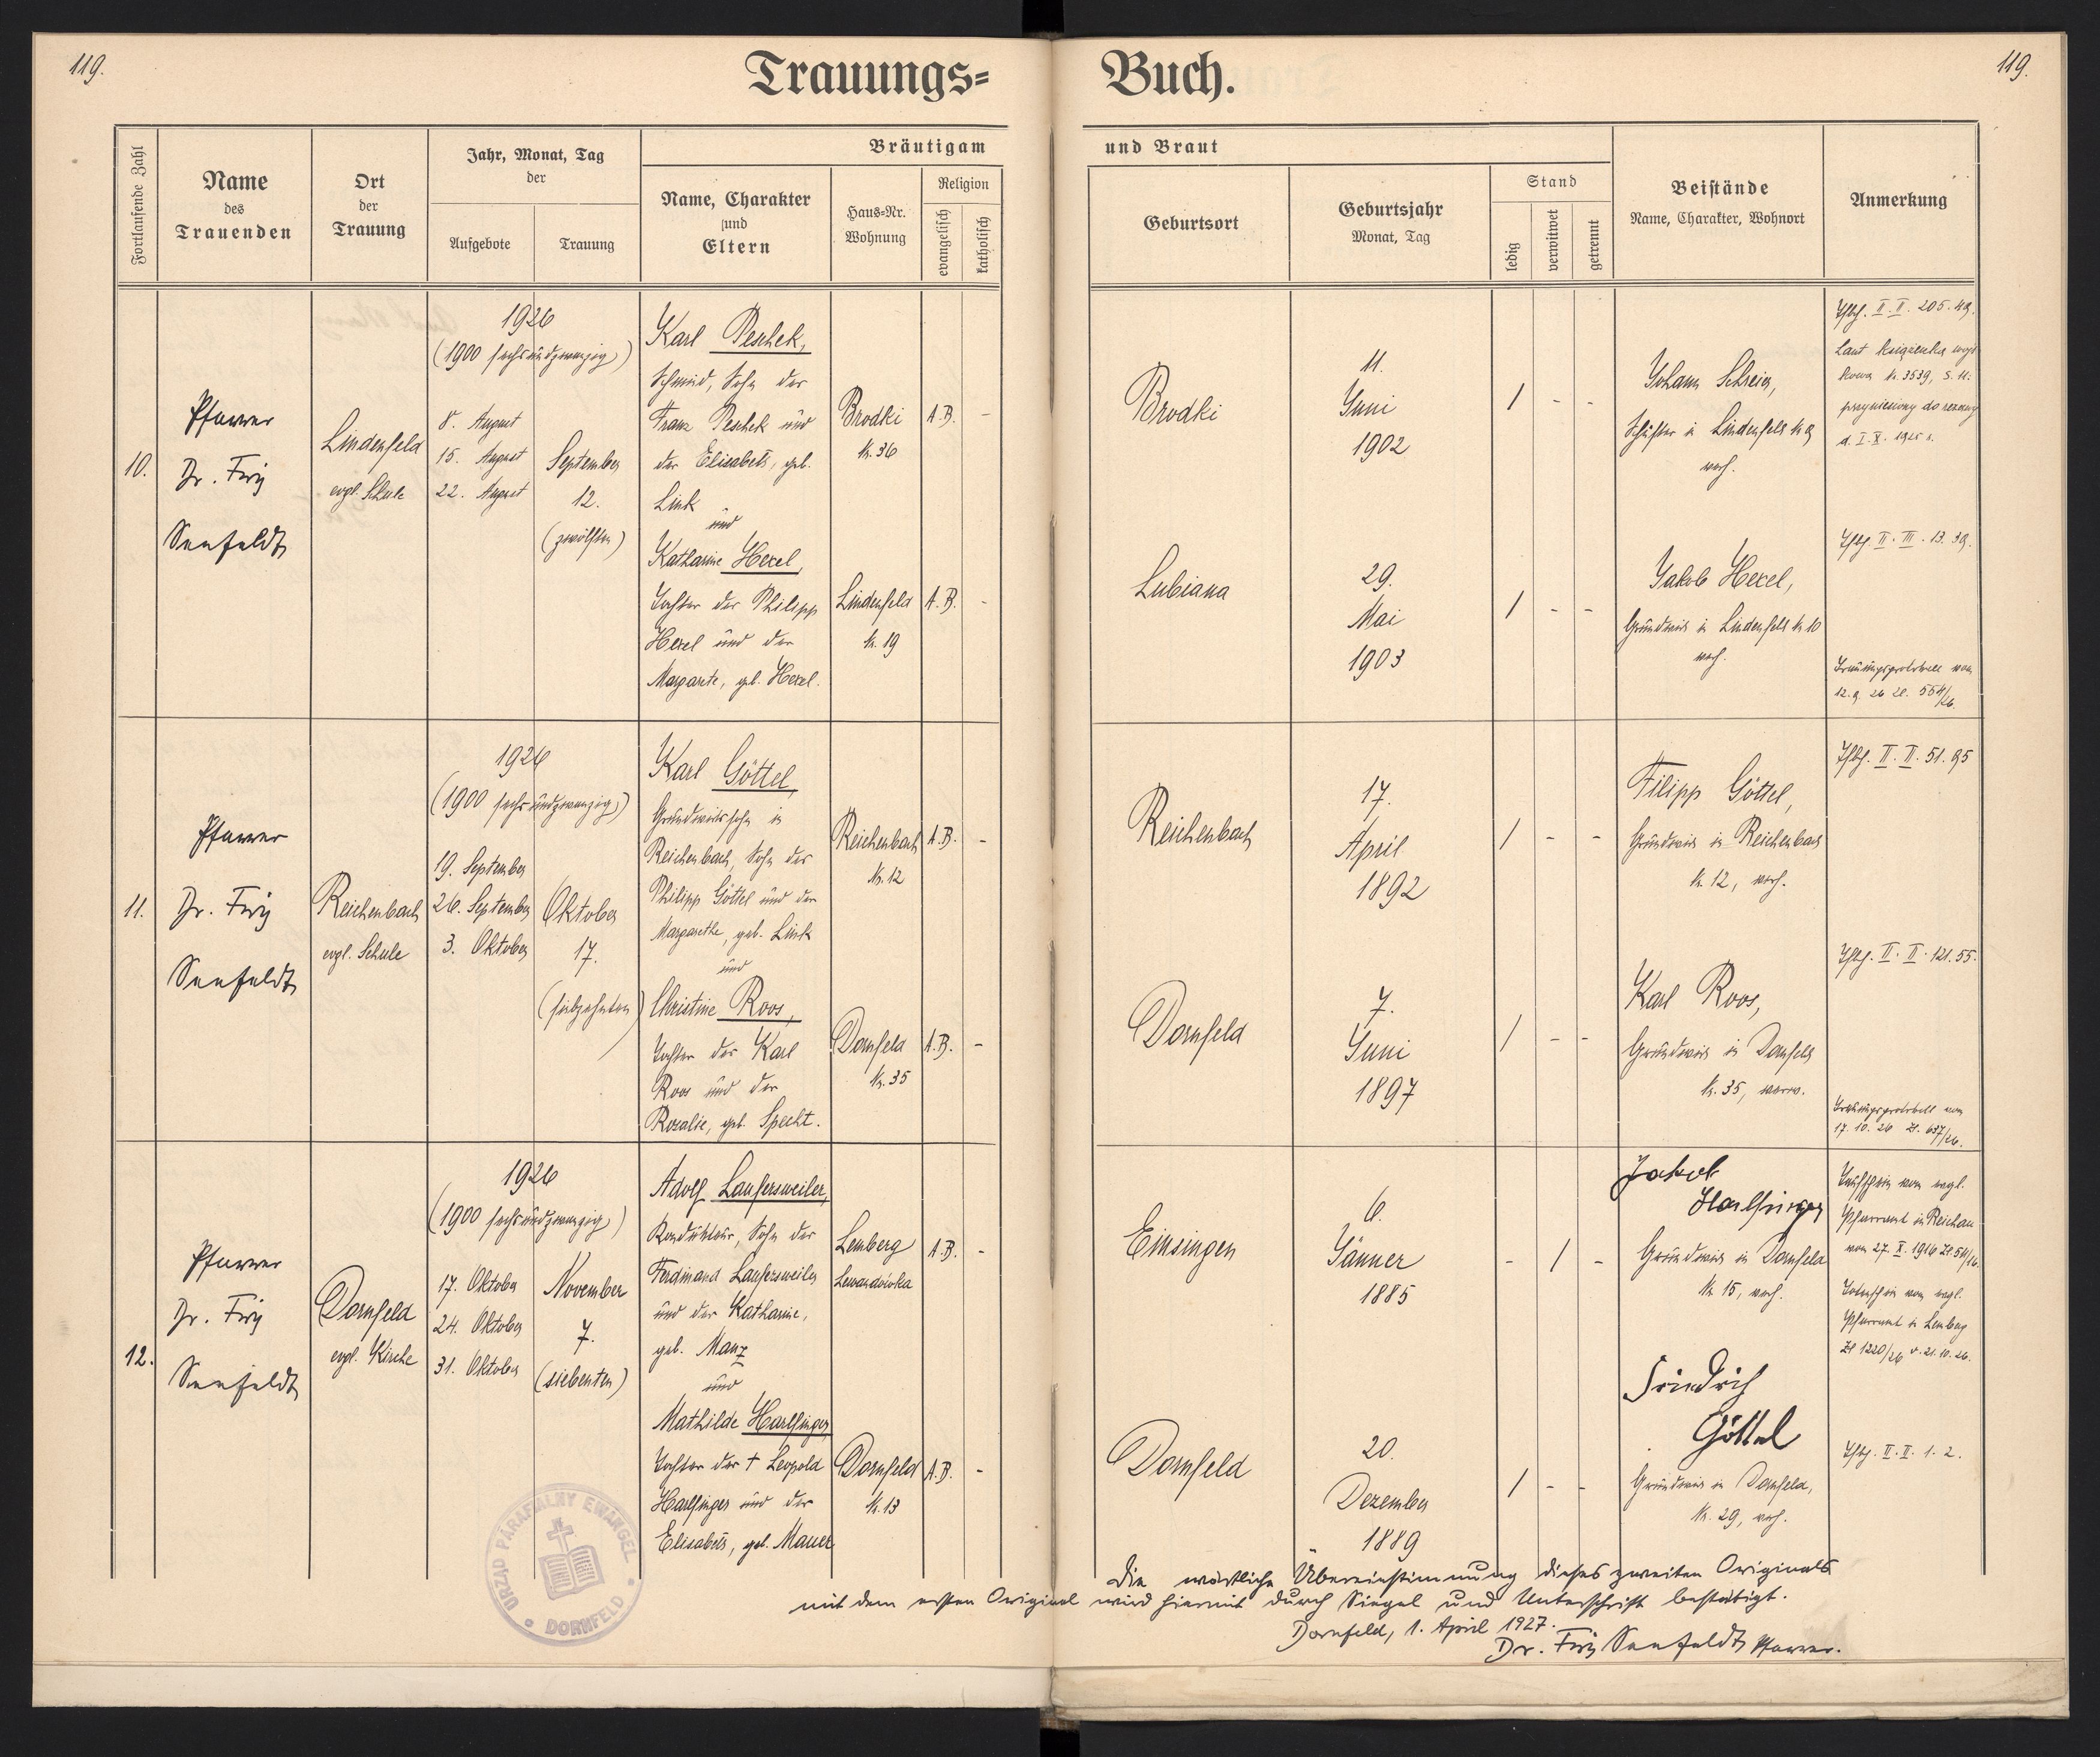 119.
Trauungs=
Buch.
119.
Fortlaufende Zahl
Name
des
Trauenden
Ort
der
Trauung
Jahr, Monat, Tag
der
Aufgebote
Trauung
Bräutigam
Name, Charakter
und
Eltern
Haus=Nr.
Wohnung
Religion
evangelisch
katholisch
und Braut
Geburtsort
Geburtsjahr
Monat, Tag
Stand
ledig
verwitwet
getrennt
Beistände
Name, Charakter, Wohnort
Anmerkung
10.
Pfarrer
Dr. Fritz
Seefeldt
Lindenfeld
evgl. Schule
1926
(1900 sechsundzwanzig)
8. August
15. August
22. August
September
12.
(zwölften)
Karl Peschek,
Schmied, Sohn des
Franz Peschek und
der Elisabeth, geb.
Link
und
Katharine Hexel,
Tochter des Philipp
Hexel und der
Margarete, geb. Hexel.
Brodki
Nr. 36
A.B. -
Lindenfeld
Nr. 19
A.B. -
Brodki
11.
Juni
1902
/ - -
Lubiana
29.
Mai
1903
/ - -
Johann Schreier,
Schuster in Lindenfeld Nr 9
verh.
Jakob Hexel,
Grundwirt in Lindenfeld Nr 10
verh.
II. II. 205. 49.
Laut książeczka wojs
kowa Nr. 3539, S. 11.
przyniesiony do rezerwy
d. I. X. 1925 r.
II. III. 13. 39.
Trauungsprotokoll vom
12. 9. 26 Zl. 554/26.
11.
Pfarrer
Dr. Fritz
Seefeldt
Reichenbach
evgl. Schule
1926
(1900 sechsundzwanzig)
19. September
26. September
3. Oktober
Oktober
17.
(siebzehnten)
Karl Göttel,
Grundwirtssohn in
Reichenbach, Sohn des
Philipp Göttel und der
Margarethe, geb. Link
und
Christine Roos,
Tochter des Karl
Roos und der
Rosalie, geb. Specht.
Reichenbach
Nr. 12
A.B. -
Dornfeld
Nr. 35
A.B. -
Reichenbach
17.
April
1892
/ - -
Dornfeld
7.
Juni
1897
/ - -
Filipp Göttel,
Grundwirt in Reichenbach
Nr. 12, verh.
Karl Roos,
Grundwirt in Dornfeld
Nr. 35, verw.
II. II. 51. 95
II. II. 121. 55.
Trauungsprotokoll vom
17. 10. 26 Zl. 637/26.
12.
Pfarrer
Dr. Fritz
Seefeldt
Dornfeld
evgl. Kirche
1926
(1900 sechsundzwanzig)
17. Oktober
24. Oktober
31. Oktober
November
7.
(siebenten)
Adolf Laufersweiler,
Kondukteur, Sohn des
Ferdinand Laufersweiler
und der Katharine,
geb. Manz
und
Mathilde Harlfinger,
Tochter des † Leopold
Harlfinger und der
Elisabeth, geb. Mauer
Lemberg
Lewandówka
A.B. -
Dornfeld
Nr. 13
A.B. -
Einsingen
6.
Jänner
1885
- / -
Dornfeld
20.
Dezember
1889
/ - -
Jakob
Harlfinger
Grundwirt in Dornfeld
Nr 15, verh.
Friedrich
Göttel
Grundwirt in Dornfeld,
Nr. 29, verh.
Taufschein vom evgl.
Pfarramt in Reichau
vom 27. X. 1916 Zl 54/16.
Totenschein vom evgl.
Pfarramt in Lemberg
Zl 1220/26 v. 21. 10. 26.
II. II. 1. 2.
URZĄD PARAFIALNY EWANGEL.
DORNFELD
Die wörtliche Übereinstimmung dieses zweiten Originals
mit dem ersten Original wird hiermit durch Siegel und Unterschrift bestätigt.
Dornfeld, 1. April 1927.
Dr. Fritz Seefeldt Pfarrer.